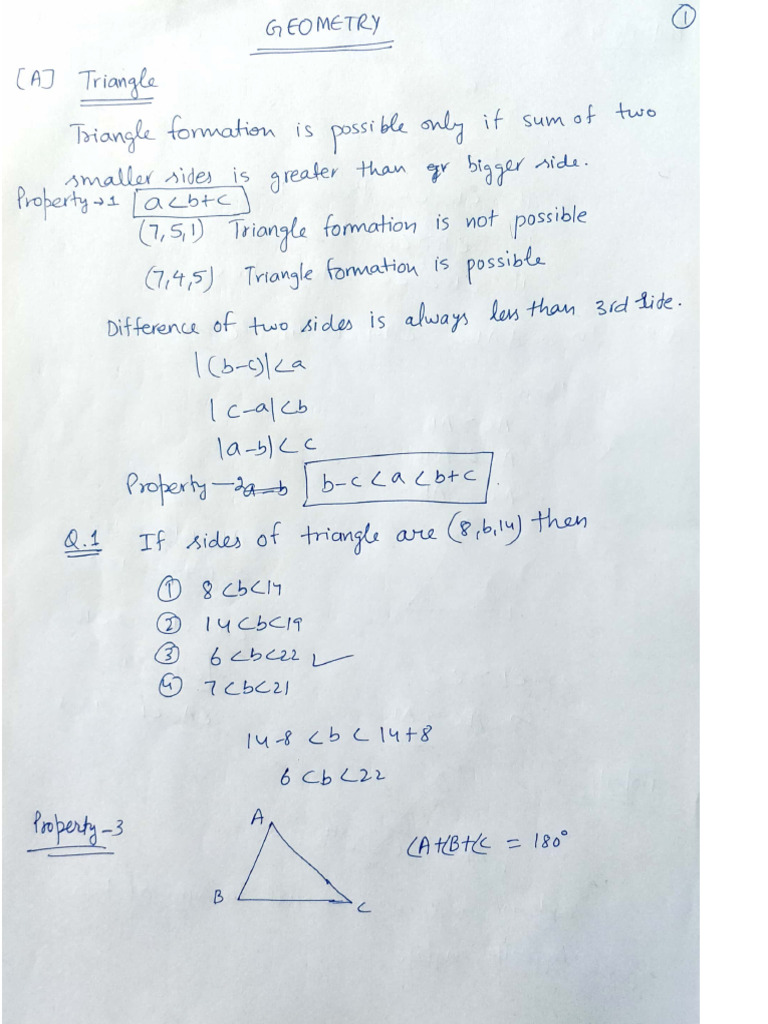 GEOMETRY
①
[A] Triangle
Triangle formation is possible only if sum of two
smaller sides is greater than bigger side.
Property → 1 a<b+c
(7,5,1) Triangle formation is not possible
(7,4,5) Triangle formation is possible
Difference of two sides is always less than 3rd side.
|(b-c)|<a
|c-a|<b
|a-b|<c
Property-2 b-c<a<b+c
Q.1 If sides of triangle are (8,b,14) then
① 8<b<14
② 14<b<19
③ 6<b<22 ✓
④ 7<b<21
14-8<b<14+8
6<b<22
Property-3
A
∠A+∠B+∠C = 180°
B
C